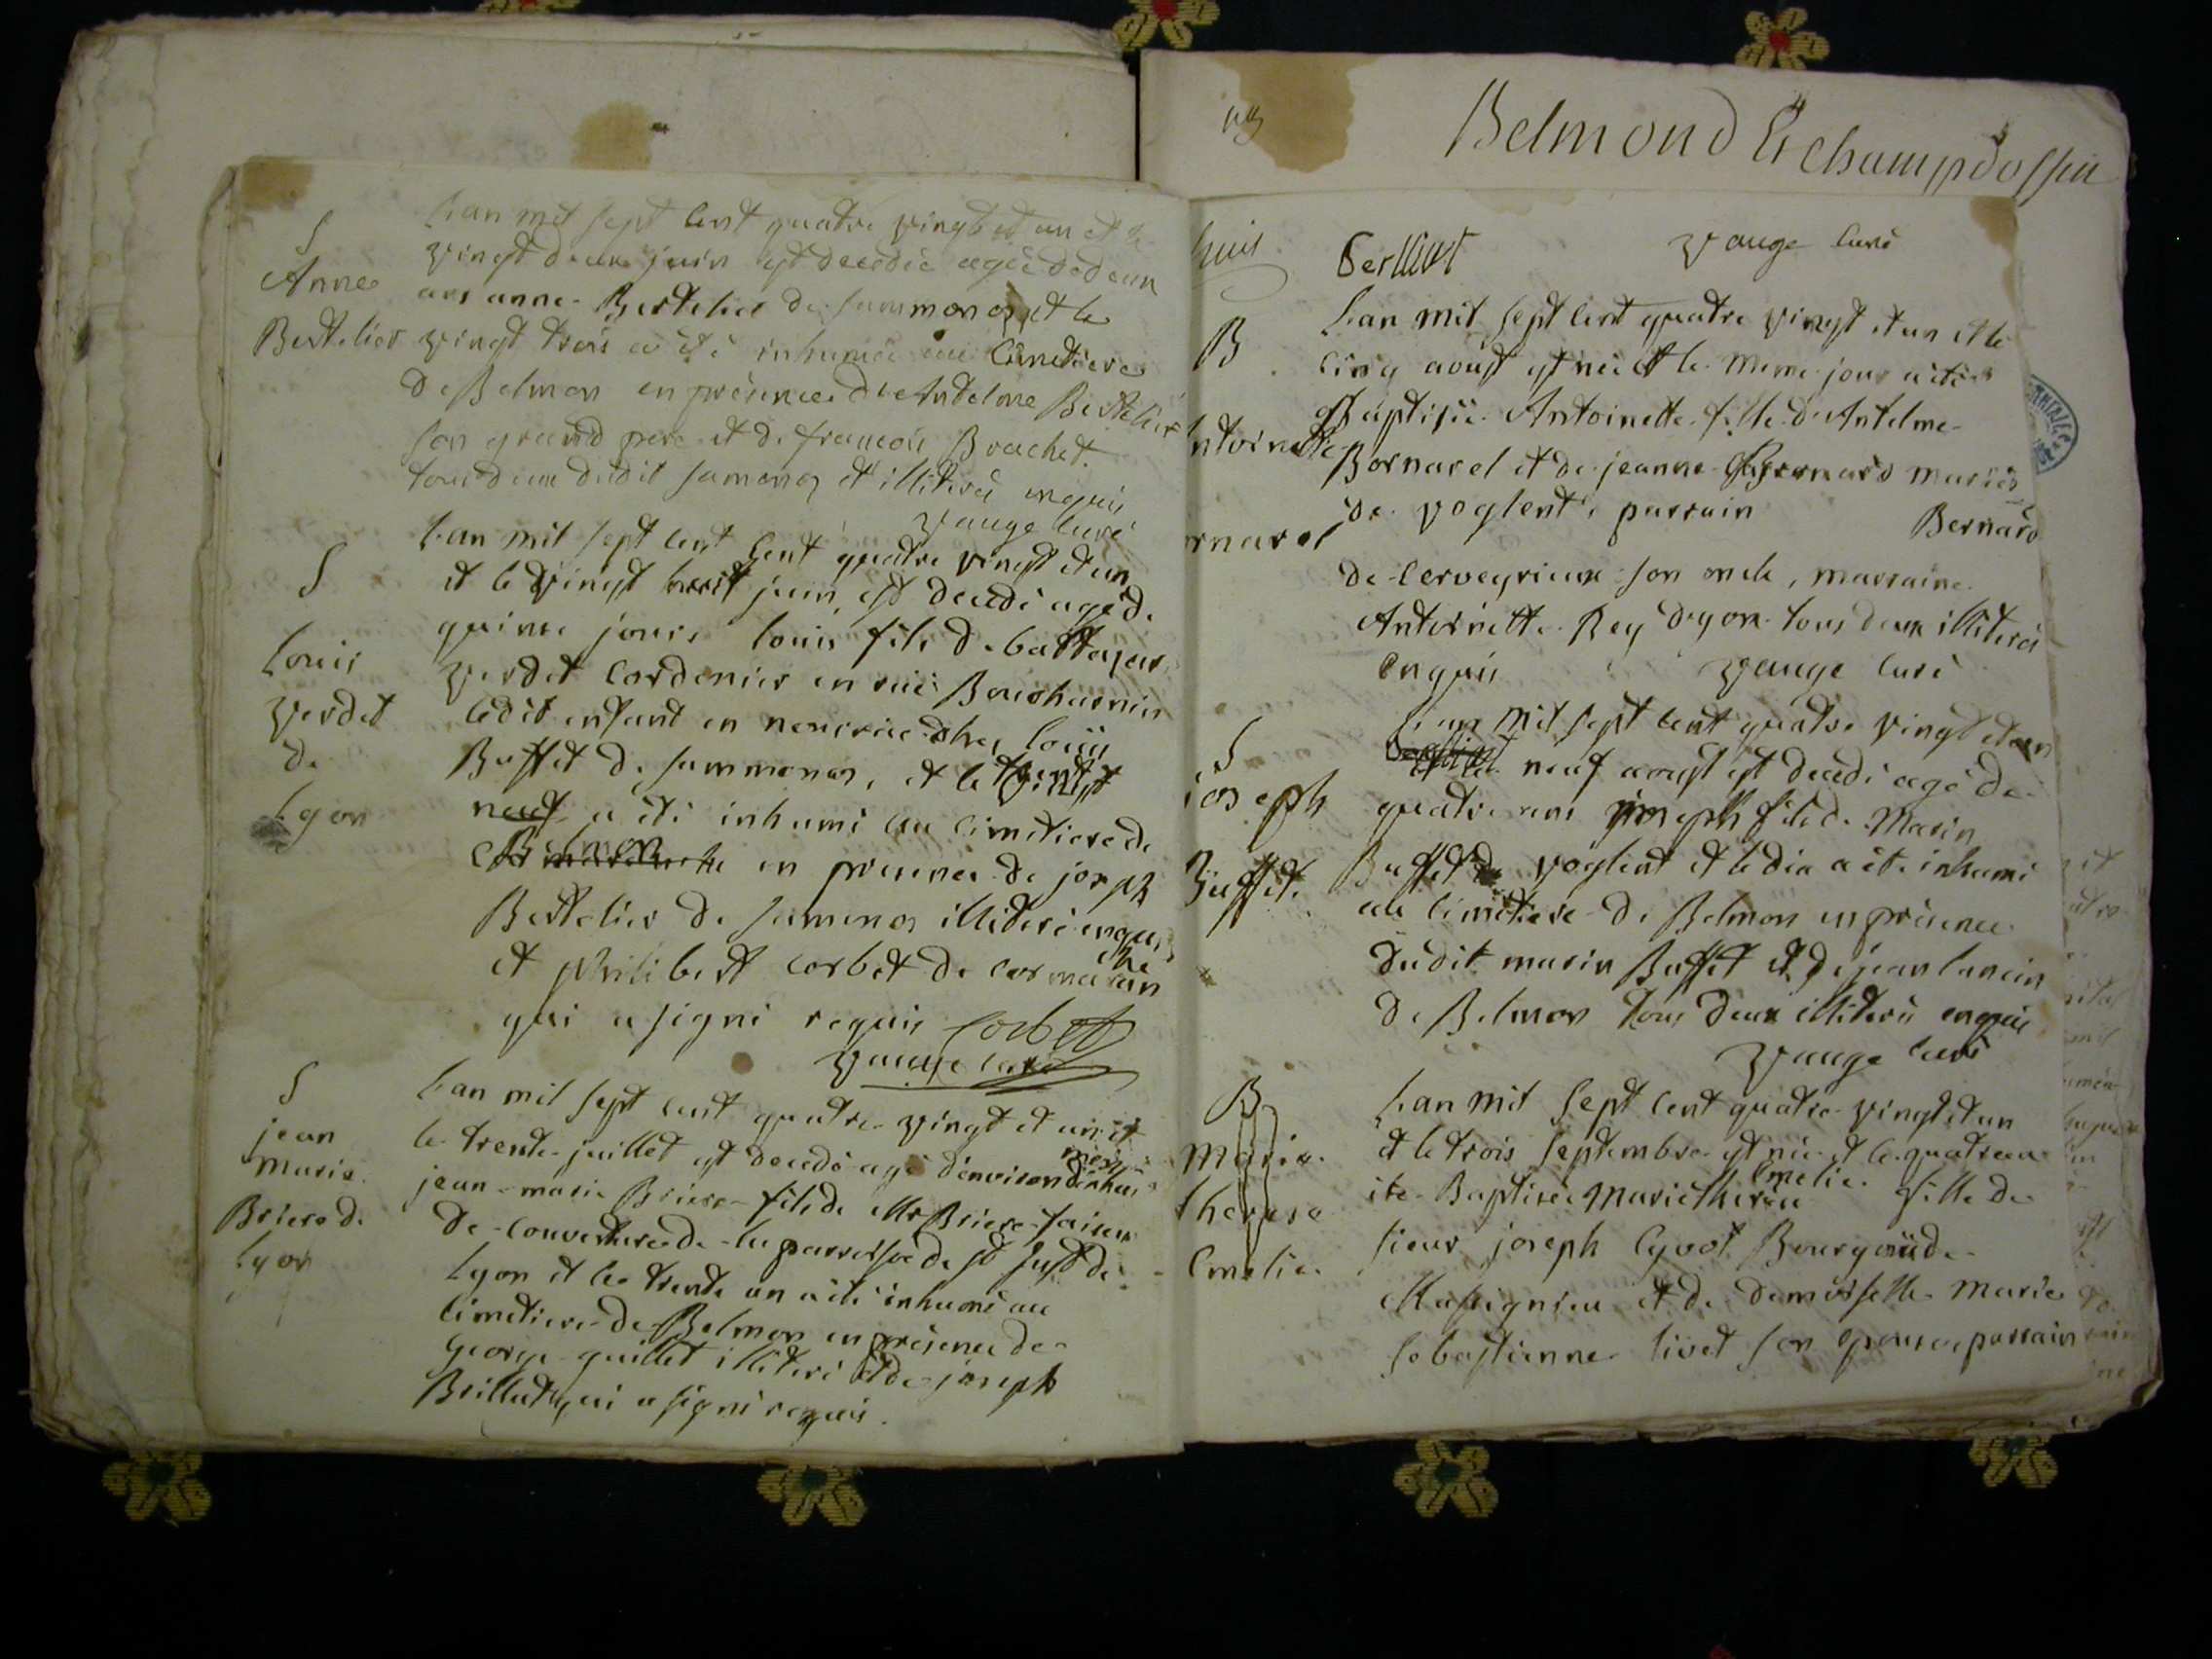 S
Anne
Bertelier
L'an mil sept cent quatre vingt et un et le
vingt deux juin est decedée agée de deux
ans anne Bertelier de sammonoz et le
vingt trois a été inhumée au cimetiere
de Belmon en présence d'Antelme Bertelier
son grand pere et de françois Brachet
tous deux dudit samonoz et illiterés enquis
vauge curé
S
Louis
verdet
de
Lyon
L'an mil sept cent cent quatre vingt et un
et le vingt huit juin est decedé agé de
quinze jours louis fils de
verdet cordonier en rue
ledit enfant en nourice chez louis
Buffet de sammonoz, et le vingt
neuf a été inhumé au cimetiere de
Belmon
en presence de joseph
Bertelier de samonoz illiteré enquis
et philibert corbet de cormaran
che
qui a signé requis Corbet
vauge curé
S
jean
marie
Briere de
Lyon
L'an mil sept cent quatre vingt et un et
le trente juillet est decedé agé d'environ
mois
jean-marie Briere fils de Mr Briere faiseur
de couvertures de la parroisse de st just de
Lyon et le trente un a été inhumé au
cimetiere de Belmon en présence de
George guillet illiteré et de joseph
Brillat qui a signé requis.
Belmond & champdossin
huit
Berlliat vauge curé
B
Antoinette
Bornarel
L'an mil sept cent quatre vingt et un et le
cinq aoust est née et le meme jour a été
Baptisée Antoinette fille d'Antelme
Bornarel et de jeanne Bernard mariés
de voglent, parrain Bernard
de cerveyrieux son oncle, marraine
Antoinette Rey d'yon tous deux illiterés
Enquis vauge curé
S
joseph
Buffet
L'an mil sept cent quatre vingt et un
et le neuf aoust est decedé agé de
quatre ans joseph fils de Marin
Buffet de voglent et le dix a été inhumé
au cimetiere de Belmon en présence
dudit marin Buffet et de jean lancin
de Belmon tous deux illiterés enquis
vauge curé
B
Marie
therese
Emelie
L'an mil sept cent quatre vingt et un
et le trois septembre est née et le quatre a
été Baptisée Marie therese Emelie fille de
sieur joseph Cyvot Bourgeois de
Massignieu et de demoiselle marie
sebastienne livet son epouse parrain